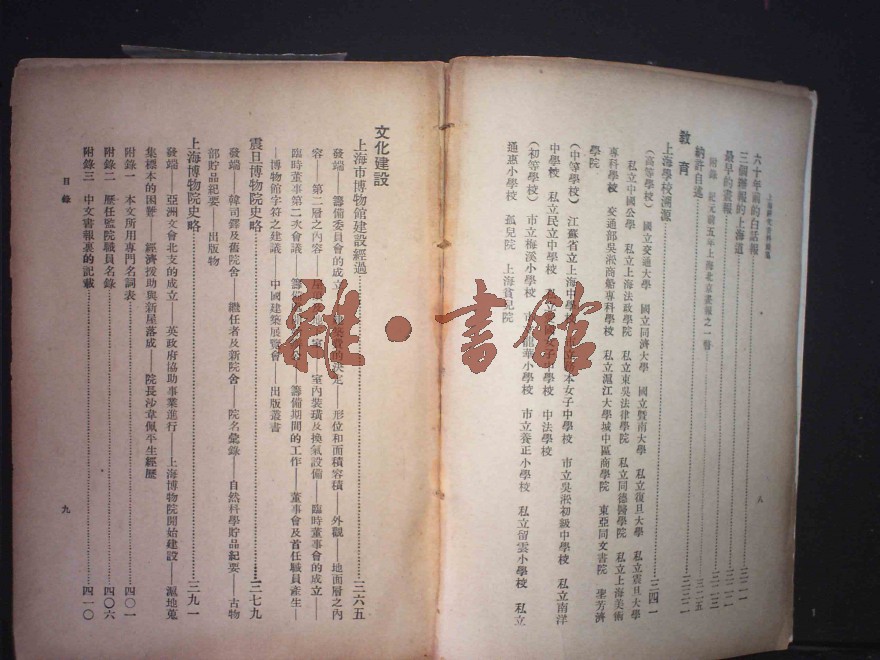 上海研究資料續集
六十年前的白話報
三個辦報的上海道
最早的畫報
納許自述
附錄 紀元前五年上海北京畫報之一瞥
教育
上海學校溯源
(高等學校) 國立交通大學 國立同濟大學 國立暨南大學 私立復旦大學 私立震旦大學
私立中國公學 私立上海法政學院 私立東吳法律學院 私立同德醫學院 私立上海美術
專科學校 交通部吳淞商船專科學校 私立滬江大學城中區商學院 東亞同文書院
學院
(中等學校) 江蘇省立上海中學校 本女子中學校 市立吳淞初級中學校 私立南洋
中學校 私立民立中學校 私立 女子中學校 中法學校
(初等學校) 市立梅溪小學校 龍華小學校 市立養正小學校 私立留雲小學校 私立
通惠小學校 孤兒院 上海貧兒院
三四一
八
文化建設
上海市博物館建設經過 三六五
發端——籌備委員會的成立 的決定——形位和面積容積——外觀——地面層之內
容——第二層之內容 室內裝璜及換氣設備——臨時董事會的成立——
臨時董事第二次會議 籌備期間的工作——董事會及首任職員產生—
—博物館字符之建議——中國建築展覽會——出版叢書
震旦博物院史略 三七九
發端——韓司鐸及舊院舍——繼任者及新院舍——院名彙錄——自然科學貯品紀要——古物
部貯品紀要——出版物
上海博物院史略 三九一
發端——亞洲文會北支的成立——英政府協助事業進行——上海博物院開始建設——滬地蒐
集標本的困難——經濟援助與新屋落成——院長沙韋佩平生經歷
附錄一 本文所用專門名詞表 四〇一
附錄二 歷任監院職員名錄 四〇六
附錄三 中文書報裏的記載 四一〇
目錄
九
雜·書館